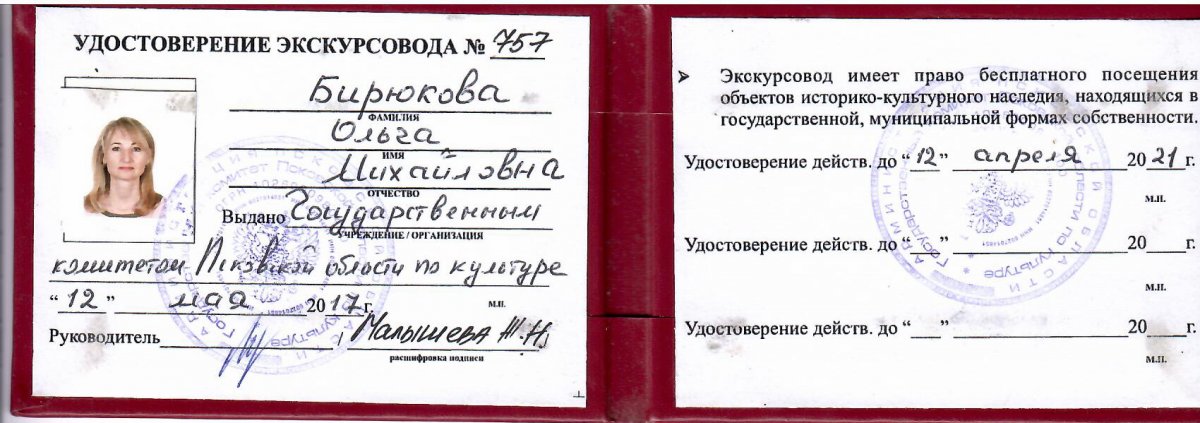 УДОСТОВЕРЕНИЕ ЭКСКУРСОВОДА № 757
Бирюкова
ФАМИЛИЯ
Ольга
ИМЯ
Михайловна
ОТЧЕСТВО
Выдано Государственным
УЧРЕЖДЕНИЕ / ОРГАНИЗАЦИЯ
комитетом Псковской области по культуре
“ 12 ” мая 2017 г. м.п.
Руководитель / Малышева Ж.Н.
расшифровка подписи
➤ Экскурсовод имеет право бесплатного посещения
объектов историко-культурного наследия, находящихся в
государственной, муниципальной формах собственности.
Удостоверение действ. до “ 12 ” апреля 20 21 г.
м.п.
Удостоверение действ. до “ ” 20 г.
м.п.
Удостоверение действ. до “ ” 20 г.
м.п.